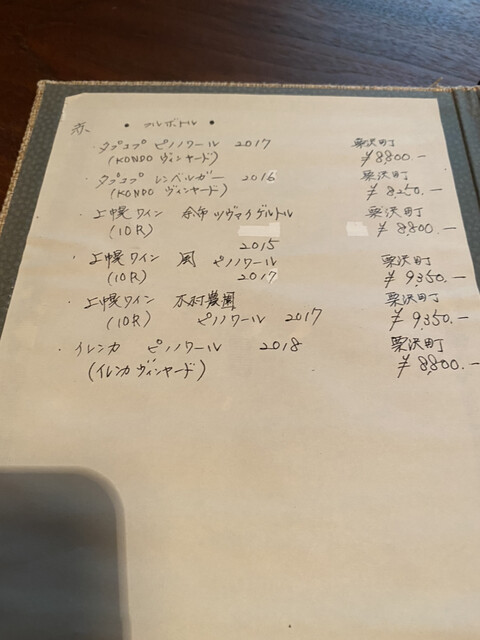 赤 • フルボトル •
・タプコプ ピノノワール 2017 栗沢町
(KONDO ヴィンヤード) ¥8800.-
・タプコプ レンベルガー 2016 栗沢町
(KONDO ヴィンヤード) ¥8,250.-
・上幌ワイン 余市ツヴァイゲルトル 栗沢町
(10R) ¥8,800.-
2015
・上幌ワイン 風 ピノノワール 栗沢町
(10R) 2017 ¥9,350.-
・上幌ワイン 木村農園 栗沢町
(10R) ピノノワール 2017 ¥9,350.-
・イレンカ ピノノワール 2018 栗沢町
(イレンカ ヴィンヤード) ¥8,800.-